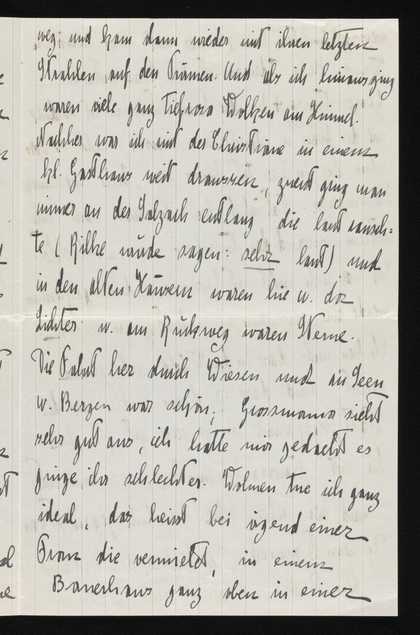 weg und kam dann wieder mit ihren letzten
Strahlen auf den Türmen. Und als ich hinausging
waren viele ganz tiefrosa Wolken am Himmel.
Nachher war ich mit der Christiane in einem
kl. Gasthaus weit draussen, zuerst ging man
immer an der Salzach entlang die laut rausch-
te (Rilke würde sagen: sehr laut) und
in den alten Häusern waren hie u. da
Lichter u. am Rückweg waren Sterne.
Die Fahrt her durch Wiesen und an Seen
u. Bergen war schön, Grossmama sieht
sehr gut aus, ich hatte mir gedacht es
ginge ihr schlechter. Wohnen tue ich ganz
ideal, das heisst bei irgend einer
Frau die vermietet, in einem
Bauerhaus ganz oben in einer